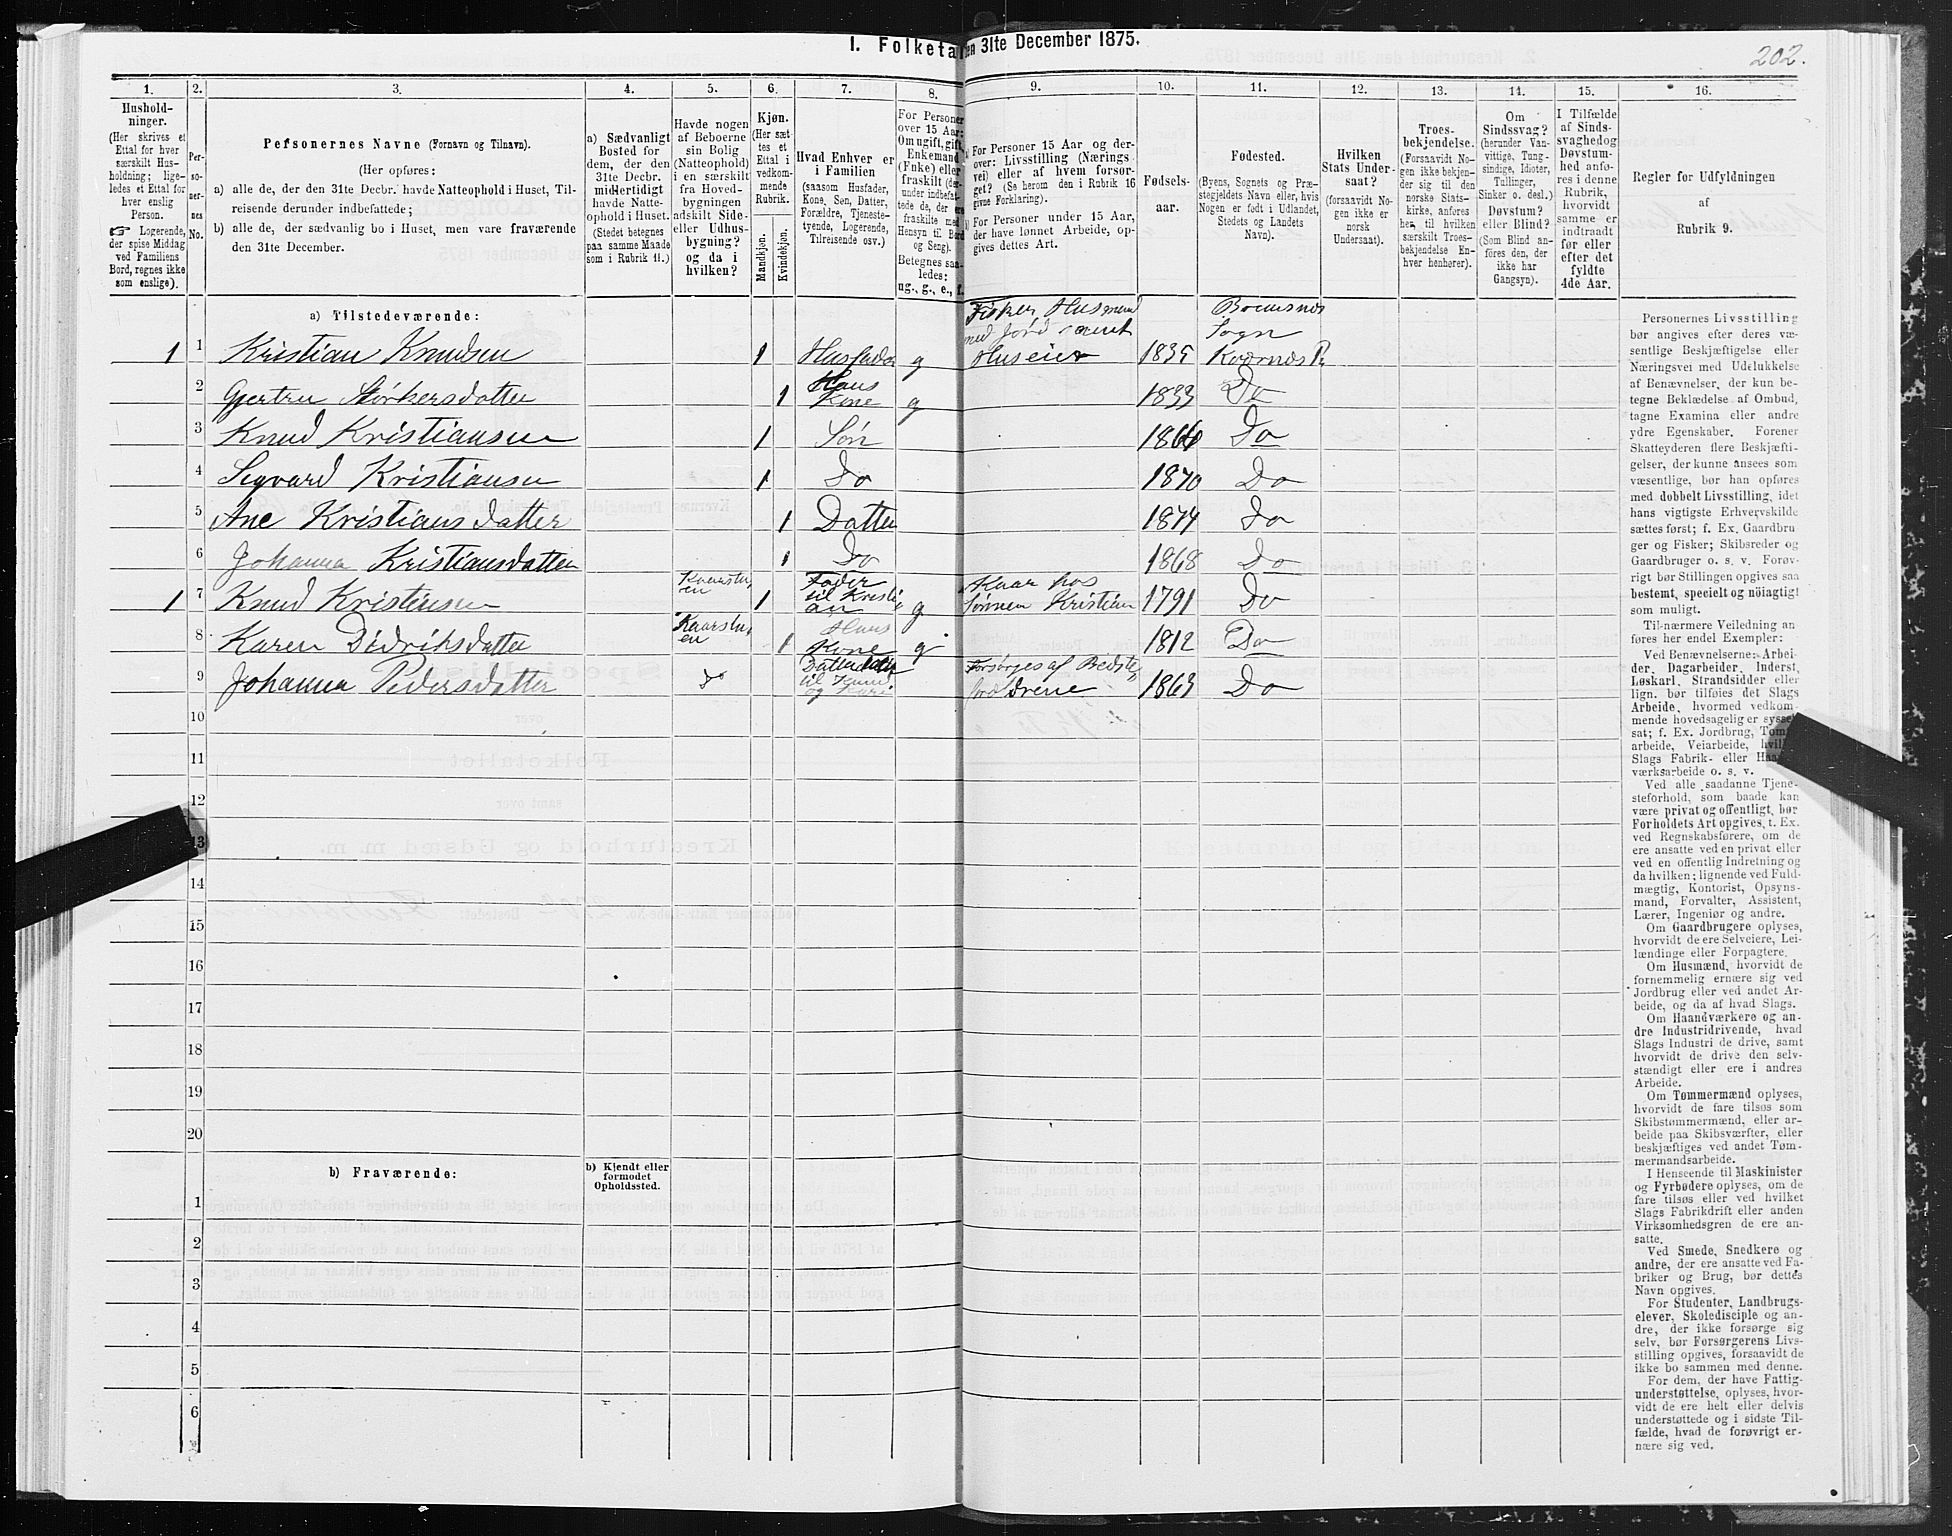 I. Folketa en 31te December 1875.
202.
1. 2. 3. 4. 5. 6. 7. 8. 9. 10. 11. 12. 13. 14. 15. 16.
Hushold-
ninger.
(Her skrives et
Ettal for hver
særskilt Hus-
holdning; lige-
ledes et Ettal for
hver enslig
Person.
☞ Logerende,
der spise Middag
ved Familiens
Bord, regnes ikke
som enslige).
Per-
so-
ner-
nes
No.
Personernes Navne (Fornavn og Tilnavn).
(Her opføres:
a) alle de, der den 31te Decbr. havde Natteophold i Huset, Til-
reisende derunder indbefattede;
b) alle de, der sædvanlig bo i Huset, men vare fraværende
den 31te December.
a) Sædvanligt
Bosted for
dem, der den
31te Decbr.
midlertidigt
havde Natte-
ophold i Huset.
(Stedet betegnes
paa samme Maade
som i Rubrik 11.)
Havde nogen
af Beboerne
sin Bolig
(Natteophold)
i en særskilt
fra Hoved-
bygningen
adskilt Side-
eller Udhus-
bygning?
og da i
hvilken?
Kjøn.
(Her sæt-
tes et
Ettal i
vedkom-
mende
Rubrik.
Mandkjøn.
Kvindekjøn.
Hvad Enhver er
i Familien
(saasom Husfader,
Kone, Søn, Datter,
Forældre, Tjeneste-
tyende, Logerende,
Tilreisende osv.)
For Personer
over 15 Aar:
Om ugift, gift,
Enkemand
(Enke) eller
fraskilt (der-
under indbefat-
tede de, der ere
fraskilte med
Hensyn til Bord
og Seng).
Betegnes saa-
ledes:
ug., g., e., f.
a) For Personer 15 Aar og der-
over: Livsstilling (Nærings-
vei) eller af hvem forsør-
get? (Se herom den i Rubrik 16
givne Forklaring).
b) For Personer under 15 Aar,
der have lønnet Arbeide, op-
gives dettes Art.
Fødsels-
aar.
Fødested.
(Byens, Sognets og Præ-
stegjeldets Navn eller, hvis
Nogen er født i Udlandet,
Stedets og Landets
Navn).
Hvilken
Stats Under-
saat?
(forsaavidt No-
gen ikke er
norsk
Undersaat).
Troes-
bekjendelse.
(Forsaavidt No-
gen ikke bekjen-
der sig til den
norske Stats-
kirke, anføres
her, til hvilken
særskilt Troes-
bekjendelse En-
hver henhører).
Om
Sindssvag?
(herunder Van-
vittige, Tung-
sindige, Idioter,
Tullinger,
Sinker o. desl.)
Døvstum?
eller Blind?
(Som Blind an-
føres den, der
ikke har
Gangsyn).
I Tilfælde
af Sinds-
svaghed og
Døvstum-
hed anfø-
res i denne
Rubrik,
hvorvidt
samme er
indtraadt
før eller
efter det
fyldte
4de Aar.
Regler for Udfyldningen
af
Rubrik 9.
a) Tilstedeværende:
Fisker, Husmand
med Jord
Huseier
Bremsnes
Sogn
Kværnes Pr
1 1 Kristian Knudsen 1 Husfader g 1835
2 Gjertru Størkersdatter 1 Hans Kone g 1833 Do
3 Knud Kristiansen 1 Søn 1866 Do
4 Sigvard Kristiansen 1 Do 1870 Do
5 Ane Kristiansdatter 1 Datter 1874 Do
6 Johanna Kristiansdatter 1 Do 1868 Do
1 7 Knud Kristiansen 1 Fader til Kristian g Kaar hos Sønnen Kristian 1791 Do
8 Karen Didriksdatter 1 Hans Kone g 1812 Do
9 Johanna Pedersdatter Do Datterdatter til Knud og Kari Forsørges af Bedsteforældrene 1863 Do
10
11
12
13
14
15
16
17
18
19
20
b) Fraværende:
b) Kjendt eller
formodet
Opholdssted.
1
2
3
4
5
6
Personernes Livsstilling
bør angives efter deres væ-
sentlige Beskjæftigelse eller
Næringsvei med Udelukkelse
af Benævnelser, der kun be-
tegne Beklædelse af Ombud,
tagne Examina eller andre
ydre Egenskaber. Forener
Skatteyderen flere Beskjæfti-
gelser, der kunne ansees som
væsentlige, bør han opføres
med dobbelt Livsstilling, idet
hans vigtigste Erhvervskilde
sættes først; f. Ex. Gaardbru-
ger og Fisker; Skibsreder og
Gaardbruger o. s. v. Forøv-
rigt bør Stillingen opgives saa
bestemt, specielt og nöiagtigt
som muligt.
Til nærmere Veiledning an-
føres her endel Exempler:
Ved Benævnelserne: Arbei-
der, Dagarbeider, Inderst,
Løskarl, Strandsidder eller
lign. bør tilføies det Slags
Arbeide, hvormed vedkom-
mende hovedsagelig er syssel-
sat; f. Ex. Jordbrug, Tømmer-
arbeide, Veiarbeide, hvilket
Slags Fabrik- eller Haand-
værksarbeide o. s. v.
Ved alle saadanne Tjene-
steforhold, som baade kan
være privat og offentligt, bør
Forholdets Art opgives, t. Ex.
ved Regnskabsførere, om de
ere ansatte ved en privat eller
ved en offentlig Indretning og
da hvilken; lignende ved Fuld-
mægtig, Kontorist, Opsyns-
mand, Forvalter, Assistent,
Lærer, Ingeniør og andre.
Om Gaardbrugere oplyses,
hvorvidt de ere Selveiere, Lei-
lændinge eller Forpagtere.
Om Husmænd, hvorvidt de
fornemmelig ernære sig ved
Jordbrug eller ved andet Ar-
beide, og da af hvad Slags.
Om Haandværkere og an-
dre Industridrivende, hvad
Slags Industri de drive, samt
hvorvidt de drive den selv-
stændigt eller ere i andres
Arbeide.
Om Tømmermænd oplyses,
hvorvidt de fare tilsøs som
Skibstømmermænd, eller ar-
beide paa Skibsværfter, eller
beskjæftiges ved andet Tøm-
mermandsarbeide.
I Henseende til Maskinister
og Fyrbødere oplyses, om de
fare tilsøs eller ved hvilket
Slags Fabrikdrift eller anden
Virksomhedsgren de ere an-
satte.
Ved Smede, Snedkere og
andre, der ere ansatte ved Fa-
briker og Brug, bør dettes
Navn opgives.
For Studenter, Landbrugs-
elever, Skoledisciple og an-
dre, der ikke forsørge sig
selv, bør Forsørgerens Livs-
stilling opgives, forsaavidt de
ikke bo sammen med denne.
For dem, der have Fattig-
understøttelse, oplyses, hvor-
vidt de ere helt eller delvis
understøttede og i sidste Til-
fælde, hvad de forøvrigt er-
nære sig ved.